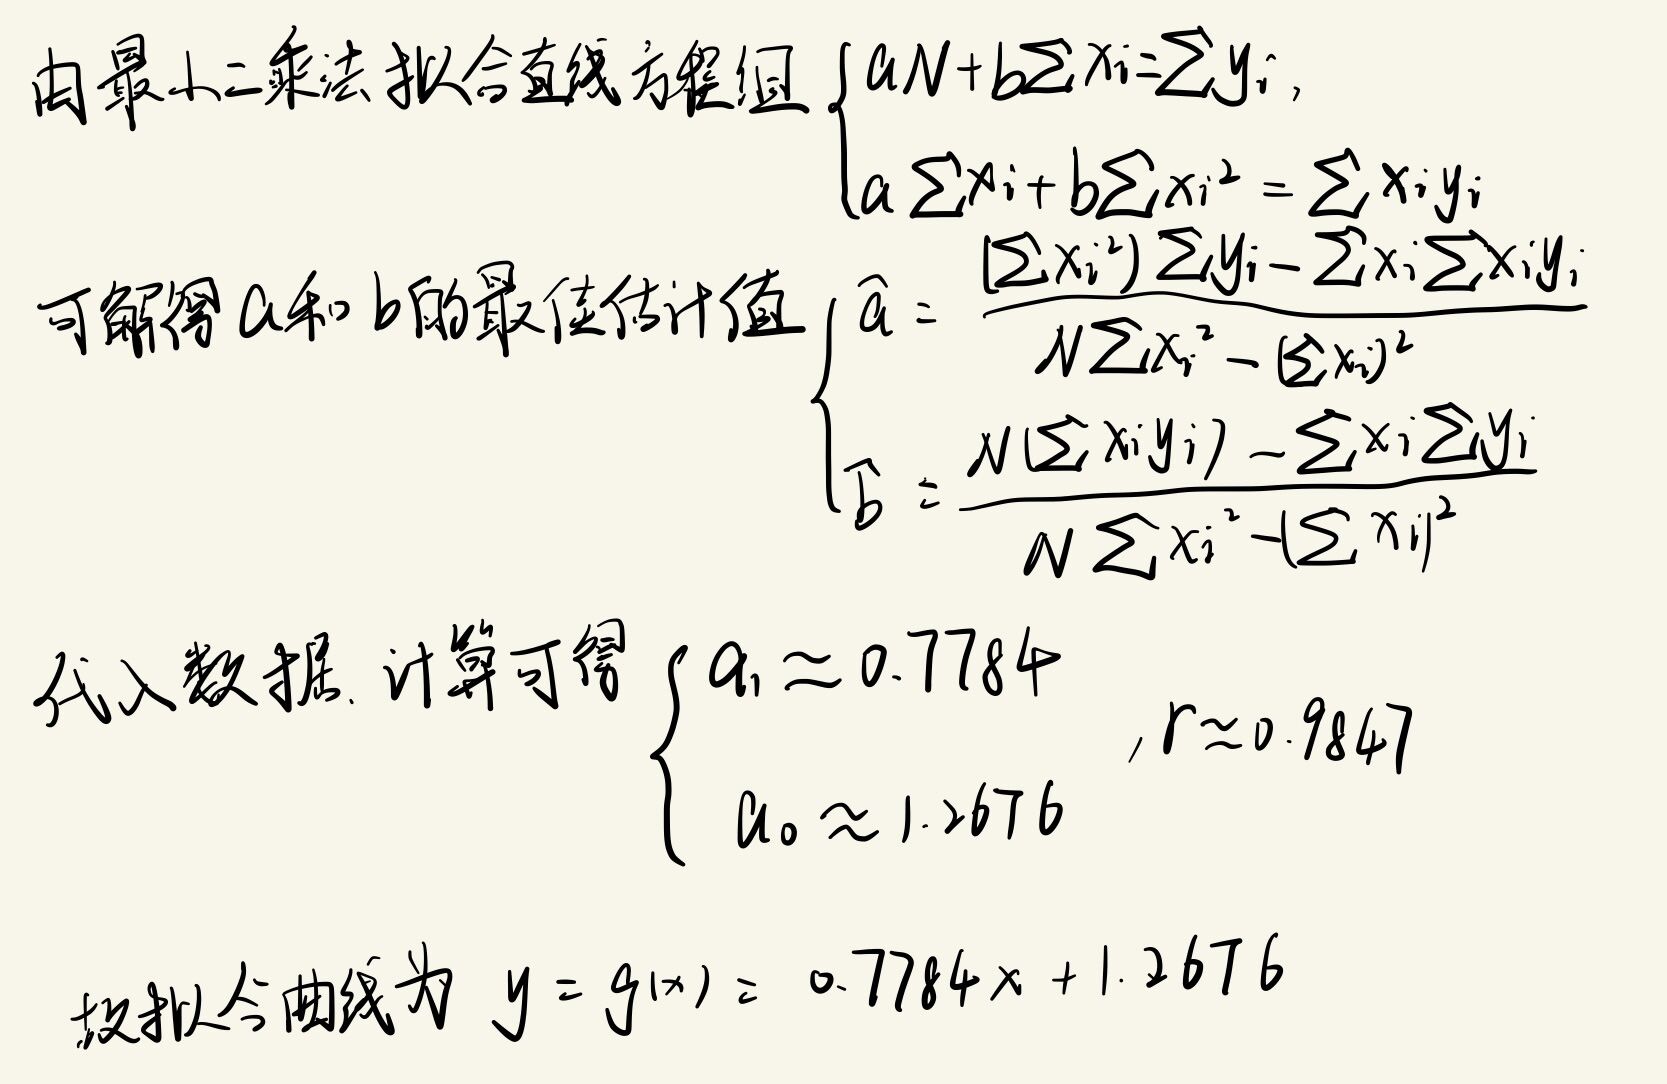 由最小二乘法拟合直线方程组 { aN+b∑xi=∑yi,
a∑xi+b∑xi² = ∑xiyi
可解得a和b的最佳估计值 { â = [(∑xi²)∑yi - ∑xi∑xiyi] / [N∑xi² - (∑xi)²]
b̂ = [N(∑xiyi) - ∑xi∑yi] / [N∑xi² - (∑xi)²]
代入数据.计算可得 { a₁ ≈ 0.7784
, r≈0.9847
a₀ ≈ 1.2676
故拟合曲线为 y = g(x) = 0.7784x + 1.2676